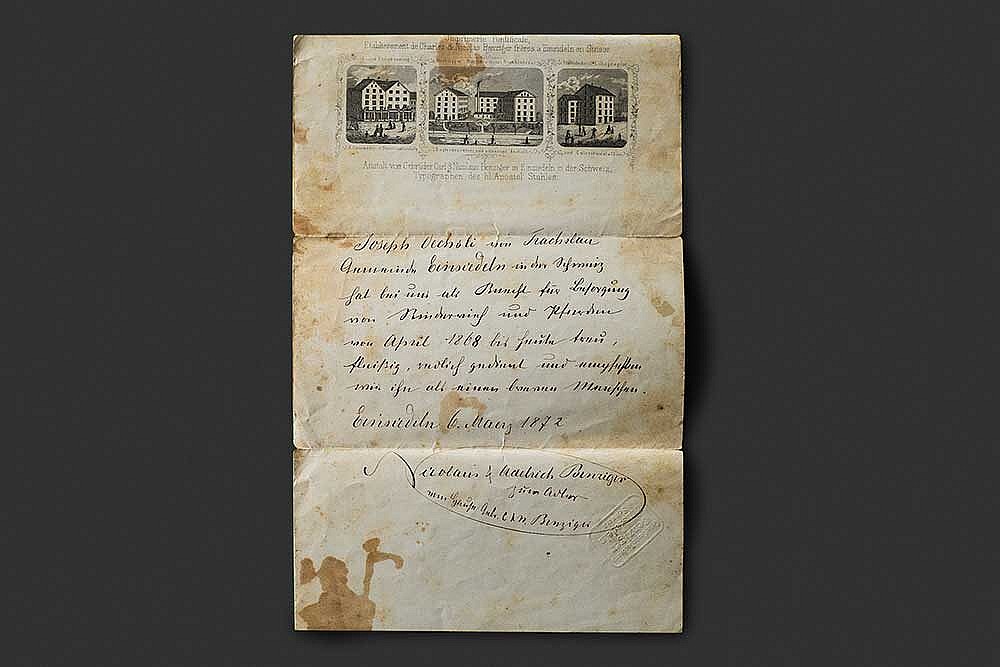 Imprimerie Pontificale,
Etablissement de Charles & Nicolas Benziger frères à Einsiedeln en Suisse.
Anstalt von Gebrüder Carl & Nicolaus Benziger in Einsiedeln in der Schweiz,
Typographen des hl. Apostol. Stuhles.
Joseph Oechsli von Trachslau
Gemeinde Einsiedeln in der Schweiz
hat bei uns als Knecht für Besorgung
von Rindervieh und Pferden
von April 1868 bis heute treu,
fleißig, redlich gedient und empfehlen
wir ihn als einen braven Menschen.
Einsiedeln 6. Maerz 1872
Nicolaus & Adelrich Benziger
zum Adler
vom Hause Gebr. C & N Benziger